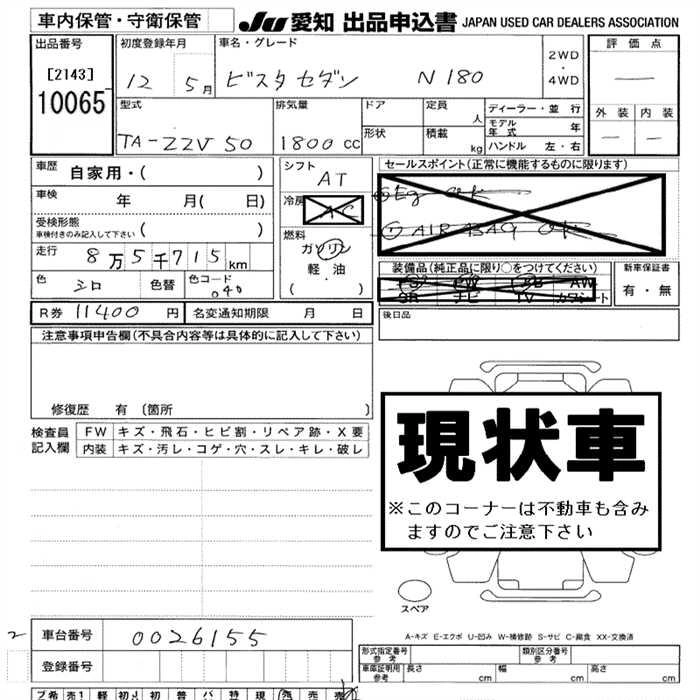 車内保管・守衛保管 JU 愛知 出品申込書 JAPAN USED CAR DEALERS ASSOCIATION
出品番号 初度登録年月 車名・グレード 2WD・4WD 評価点
[2143] 12 5月 ビスタ セダン N180 —
10065
型式 排気量 ドア 定員 人 ディーラー・並行 外装 内装
モデル年式 年
TA-ZZV50 1800cc 形状 積載 kg ハンドル 左・右 — —
車歴 自家用・( ) シフト AT セールスポイント(正常に機能するものに限ります)
車検 年 月( 日) 冷房 AC Eg OK
受検形態 車検付きのみ記入して下さい ( ) 燃料 ガソリン AIR BAG OK
走行 8万5千715km 軽油 装備品(純正品に限り○をつけてください) 新車保証書
色 シロ 色替 色コード 040 ( ・ ) PS PW AW 有・無
SR ナビ TV カワシート
R券 11400円 名変通知期限 月 日 後日品
注意事項申告欄(不具合内容等は具体的に記入して下さい)
修復歴 有 [箇所 ]
現状車
※このコーナーは不動車も含み
ますのでご注意下さい
検査員記入欄 FW キズ・飛石・ヒビ割・リペア跡・X要
内装 キズ・汚レ・コゲ・穴・スレ・キレ・破レ
スペア
A-キズ E-エクボ U-凹み W-補修跡 S-サビ C-腐食 XX-交換済
2 車台番号 0026155
形式指定番号 参考 類別区分番号 参考
登録番号 車庫証明用 参考 長さ cm 幅 cm 高さ cm